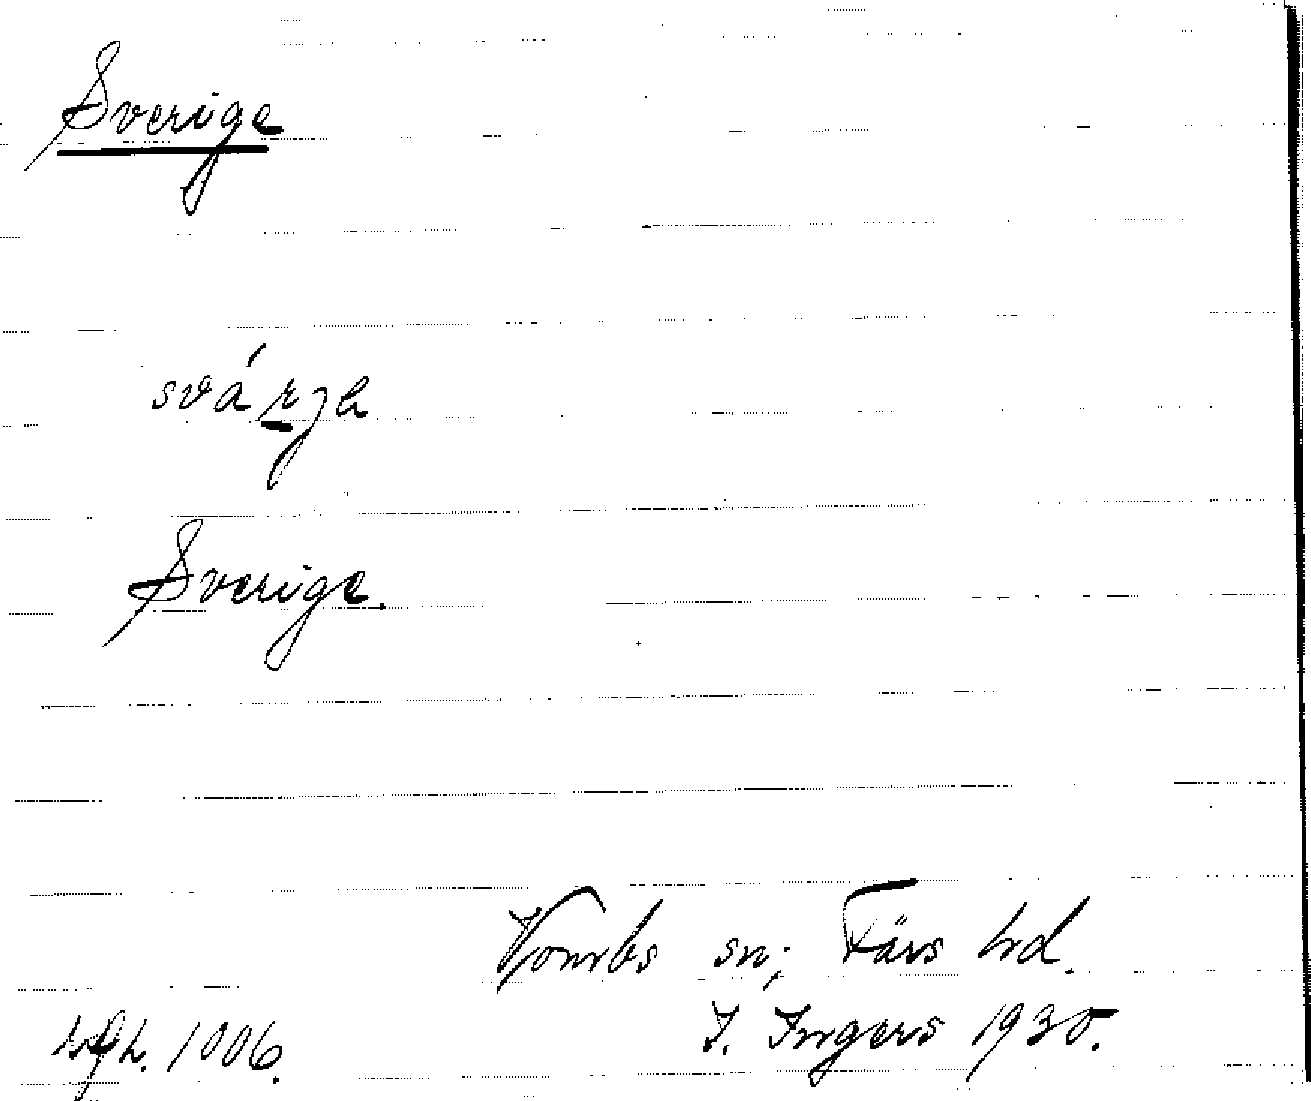 Sverige
Sverige.
Vombs sn; Färs hd.
I. Ingers 1930.
1006.